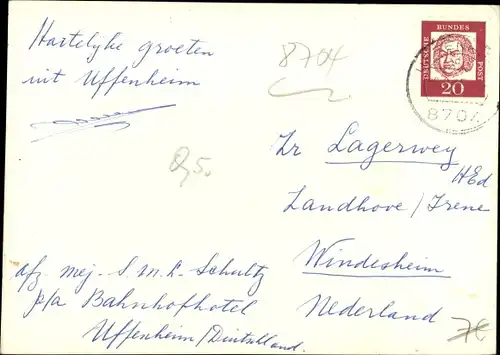 Hartelyke groeten
uit Uffenheim
8704
DEUTSCHE BUNDESPOST
20
8704
Zr Lagerwey
HEd
Landhove / Irene
Windesheim
Nederland
afz. mej. S. M. L. Schultz
p/a Bahnhofhotel
Uffenheim / Duitschland.